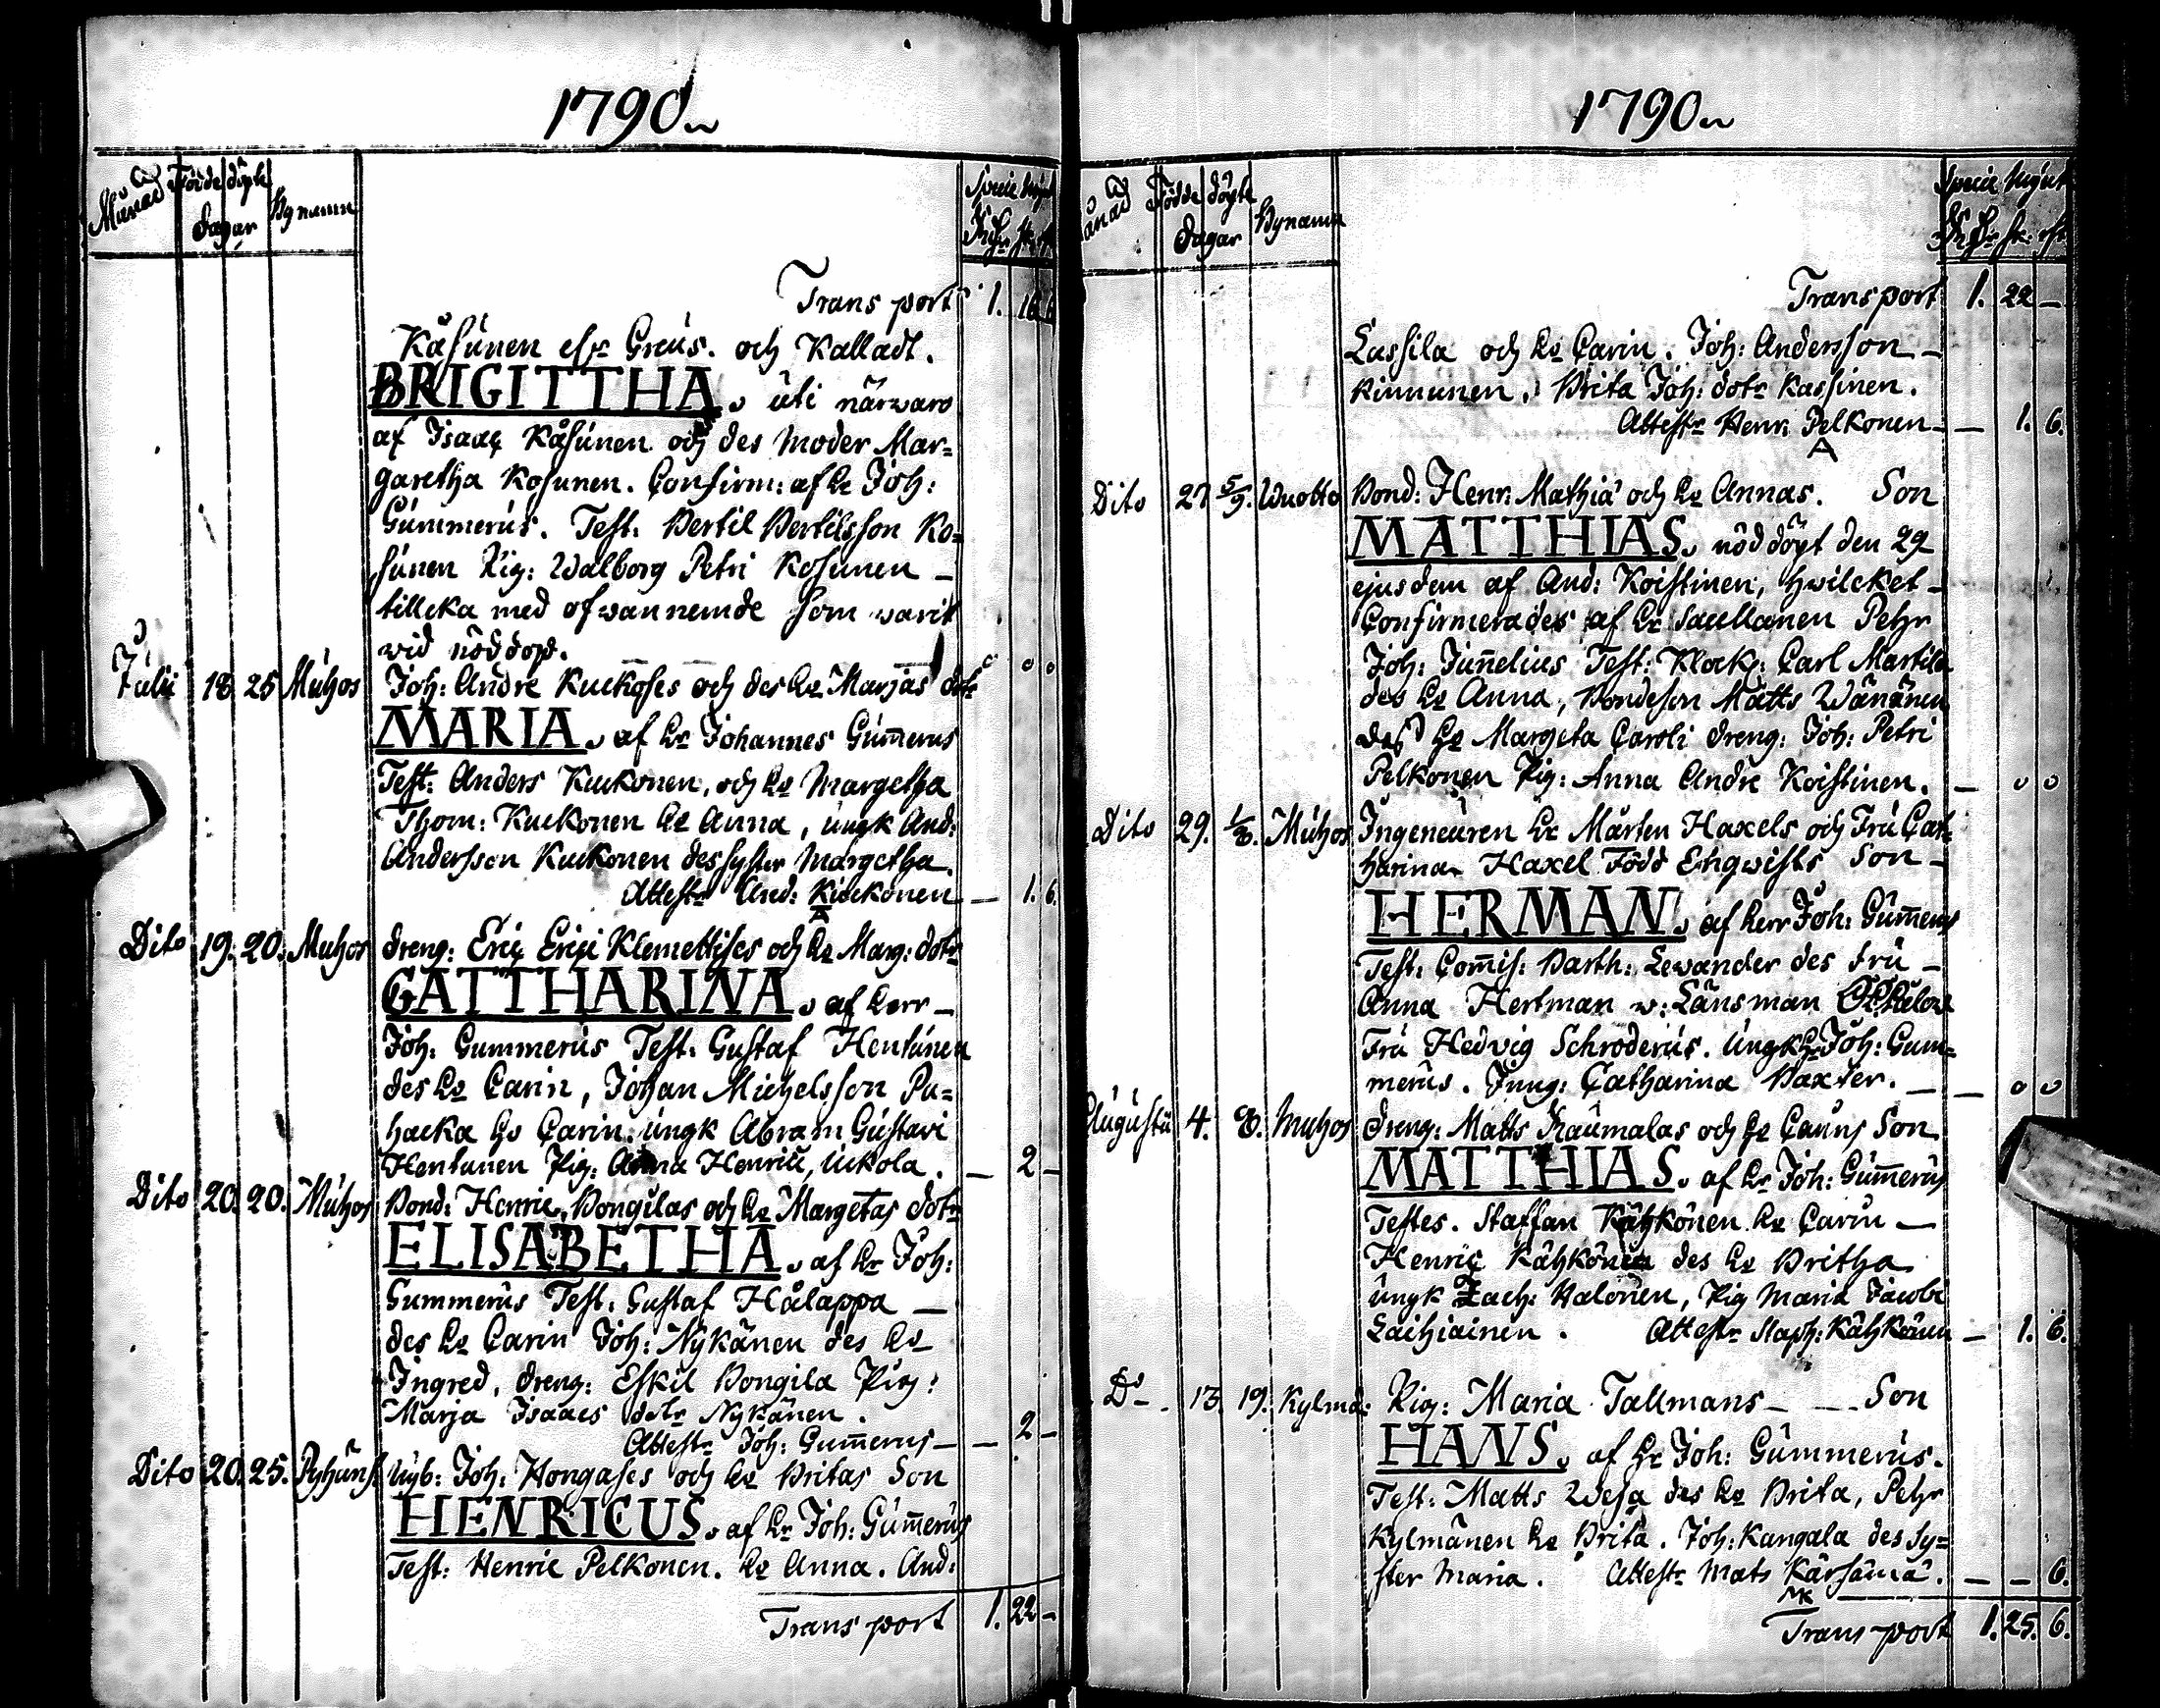 1790
Månad Födde döpte Bynamn
dagar
Specie
Transport 1. 16
Kåsunen och Kalladt.
BRIGITTHA. uti närwaro
af Isaac Kåsunen och des moder Mar=
garetha Kosunen. Confirm: af Hr Joh:
Gummerus. Test: Bertil Bertilsson Ko=
sunen Pig: Walborg Petri Kosunen –
tillcka med ofwannemde som warit
wid nöddop.
Julii 18. 25 Muhos Joh: Andre Kuckoses och des Ho Marjas dotr
MARIA. af Hr Johannes Gum̄erus
Test: Anders Kuckonen, och Ho Margetha
Thom: Kuckonen Ho Anna, ungk And:
Andersson Kuckonen des syster Margetha.
Attestr And: Kuckonen — 1. 6.
Dito 19. 20. Muhos dreng: Eric Erici Klemettises och Ho Marg: dotr
CATTHARINA. af herr –
Joh: Gummerus Test: Gustaf Hentunen
des Ho Carin, Johan Michelsson Pu=
hacka Ho Carin. ungk Abram Gustavi
Hentunen Pig: Anna Henrici, Uckola. — 2 –
Dito 20. 20. Muhos Bond: Henric Bongilas och Ho Margetas dotr
ELISABETHA. af Hr Joh:
Gummerus Test: Gustaf Hålappa —
des Ho Carin Joh: Nykänen des Ho
Ingred, dreng: Eskil Bongila Pig:
Marja Isaacs dotr Nykänen.
Attestr Joh: Gum̄erus — — 2 –
Dito 20. 25. Pyhäns. Nyb: Joh: Hongases och Ho Britas Son
HENRICUS. af Hr Joh: Gum̄erus
Test: Henric Pelkonen. Ho Anna. And:
Transport 1. 22 –
1790
Månad Födde döpte Bynamn
dagar
Specie
Transport 1. 22 —
Lassila och Ho Carin. Joh: Andersson –
Kinnunen. Brita Joh: dotr Kassinen.
Attestr Henr: Pelkonen — 1. 6.
Dito 27 5/9. Wuotto Bond: Henr: Mathiæ och Ho Annas. Son
MATTHIAS. nöddöpt den 29
ejusdem af And: Koistinen, hwilcket –
Confirmerades af Hr Pehr
Joh: Jun̄elius Test: Klock: Carl Martilin
des Ho Anna, Bondeson Matts Wänänen
des Ho Margeta Caroli dreng: Joh: Petri
Pelkonen Pig: Anna Andre Koistinen. — 0 0
Dito 29. 1/8. Muhos Ingeneuren Hr Mårten Haxels och Fru Cat=
harina Haxel Född Enqwists Son –
HERMAN. af herr Joh: Gum̄erus
Test: Com̄is: Barth: Lewander des Fru –
Anna Hertman w: Länsman
Fru Hedvig Schroderus. Ungk Hr Joh: Gum=
merus. Jung: Catharina Baxter. — 0 0
Augusti 4. 8. Muhos dreng: Matts Raumalas och Ho Carins Son
MATTHIAS. af Hr Joh: Gum̄erus
Testes. Staffan Kähkönen Ho Carin —
Henric Kähkönen des Ho Britha
ungk Zach: Halonen, Pig Maria Jacobi
Laihiainen. Attestr Staph: Kähkönen — 1. 6.
Do – 13. 19. Kylmä: Pig: Maria Tallmans – – Son
HANS. af Hr Joh: Gummerus.
Test: Matts Wesa des Ho Brita, Pehr
Kylmänen Ho Brita. Joh: Kangala des Sy=
ster Maria. Attestr Mats Kärsämä. — — 6.
Transport 1. 25. 6.